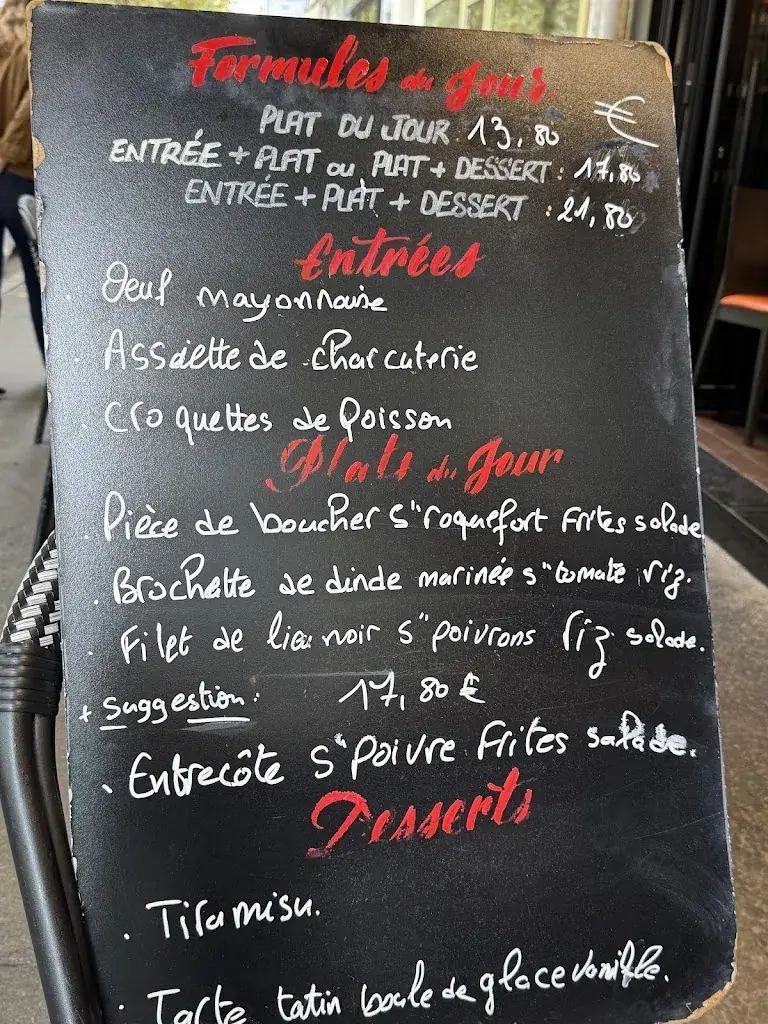 Formules du Jour
PLAT DU JOUR : 13,80 €
ENTRÉE + PLAT ou PLAT + DESSERT : 17,80
ENTRÉE + PLAT + DESSERT : 21,80
Entrées
. Oeuf mayonnaise
. Assiette de charcuterie
. Croquettes de Poisson
Plats du Jour
. Pièce de boucher s" roquefort Frites salade
. Brochette de dinde marinée s" tomate riz.
. Filet de lieu noir s" poivrons riz salade.
+ Suggestion : 17,80 €
. Entrecôte s" Poivre Frites salade.
Desserts
. Tiramisu.
. Tarte tatin boule de glace vanille.